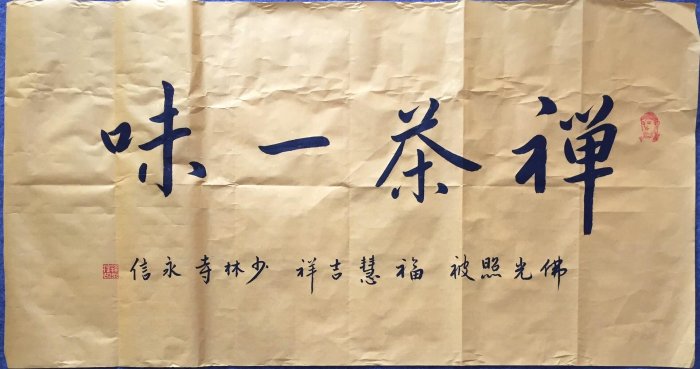 禅茶一味
佛光照被 福慧吉祥 少林寺永信